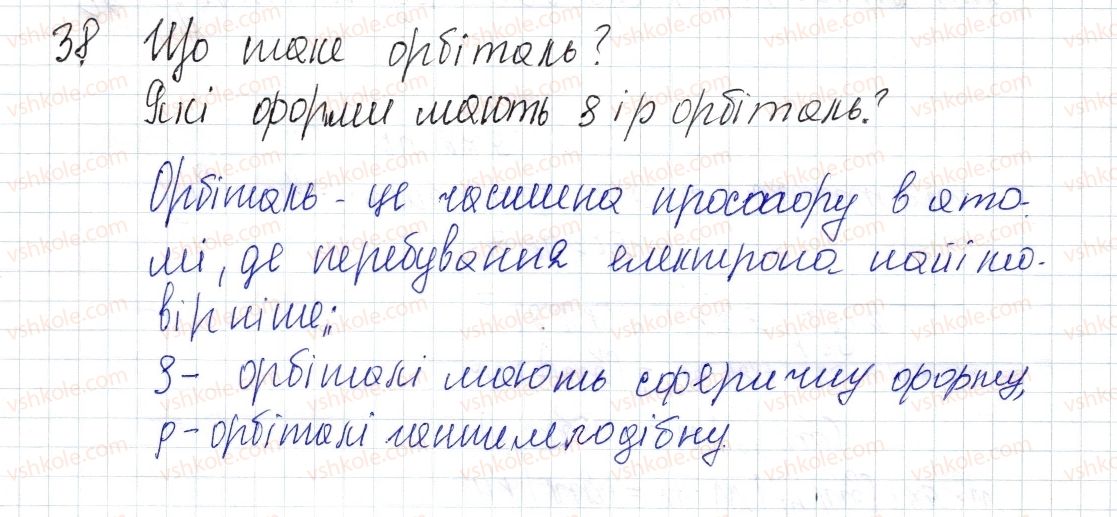 38 Що таке орбіталь?
Які форми мають s і p орбіталь?
Орбіталь - це частина простору в ато-
мі, де перебування електрона найімо-
вірніше;
s - орбіталі мають сферичну форму,
p - орбіталі гантелеподібну.